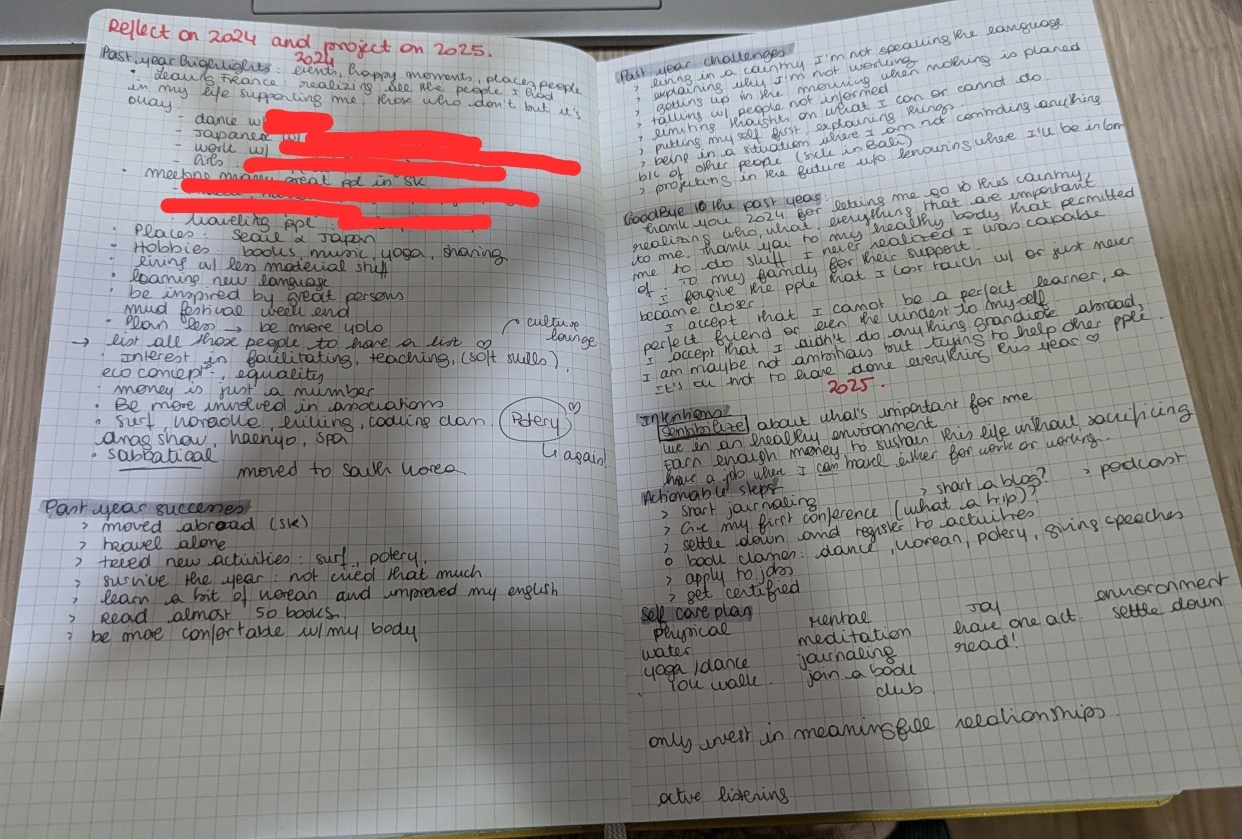 Reflect on 2024 and project on 2025.
2024
Past year highlights: events, happy moments, places, people
• leaving France realizing all the people I had
in my life supporting me, those who don't but it's
okay.
- dance w/
- Japanese w/
- work w/
- Girls :
• meeting many great ppl in SK
traveling ppl :
• Places : Seoul & Japan
• Hobbies : books, music, yoga, sharing
• living w/ less material shit
• learning new language
• be inspired by great persons
mud festival week end
• Plan less → be more yolo
→ list all those people to have a list ♡ culture lounge
• Interest in facilitating, teaching, (soft skills).
eco concept, equality
• money is just a number
• Be more involved in associations
• surf, noraoke, cooking class. Potery ♡
drag show, haenyo, spa ↳ again!
• sabbatical
moved to South Korea
Past year successes
> moved abroad (SK)
> travel alone
> tried new activities : surf, potery.
> survive the year : not cried that much
> learn a bit of Korean and improved my english
> Read almost 50 books.
> be more confortable w/ my body
Past year challenges
> living in a country I'm not speaking the language
> explaining why I'm not working
> getting up in the morning when nothing is planed
> talking w/ people not informed
> limiting thoughts on what I can or cannot do
> putting my self first, explaining things.
> being in a situation where I am not controling anything
bic of other people (sick in Bali)
> projecting in the future w/o knowing where I'll be in 6m
Goodbye to the past year:
Thank you 2024 for letting me go to this country,
realizing who, what, everything that are important
to me. Thank you to my healthy body that permitted
me to do stuff I never realized I was capable
of. To my family for their support.
I forgive the pple that I lost touch w/ or just never
became closer
I accept that I cannot be a perfect learner, a
perfect friend or even the kindest to myself
I accept that I didn't do anything grandiose abroad,
I am maybe not ambitious but trying to help other pple.
It's ok not to have done everything this year ♡
2025.
Intentions
Sensibilize about what's important for me
live in an healthy environment
Earn enough money to sustain this life without sacrificing
have a job when I can travel either for work or working.
Actionable steps
> start journaling > start a blog? > podcast
> Give my first conference (what a trip)?
> settle down and register to activities
o book classes: dance, Korean, potery, giving speeches
> apply to jobs
> get certified
Self care plan
Physical Mental Joy environment
water meditation have one act. settle down
yoga / dance journaling read!
10k walk. join a book
club
only invest in meaningfull relationships.
active listening